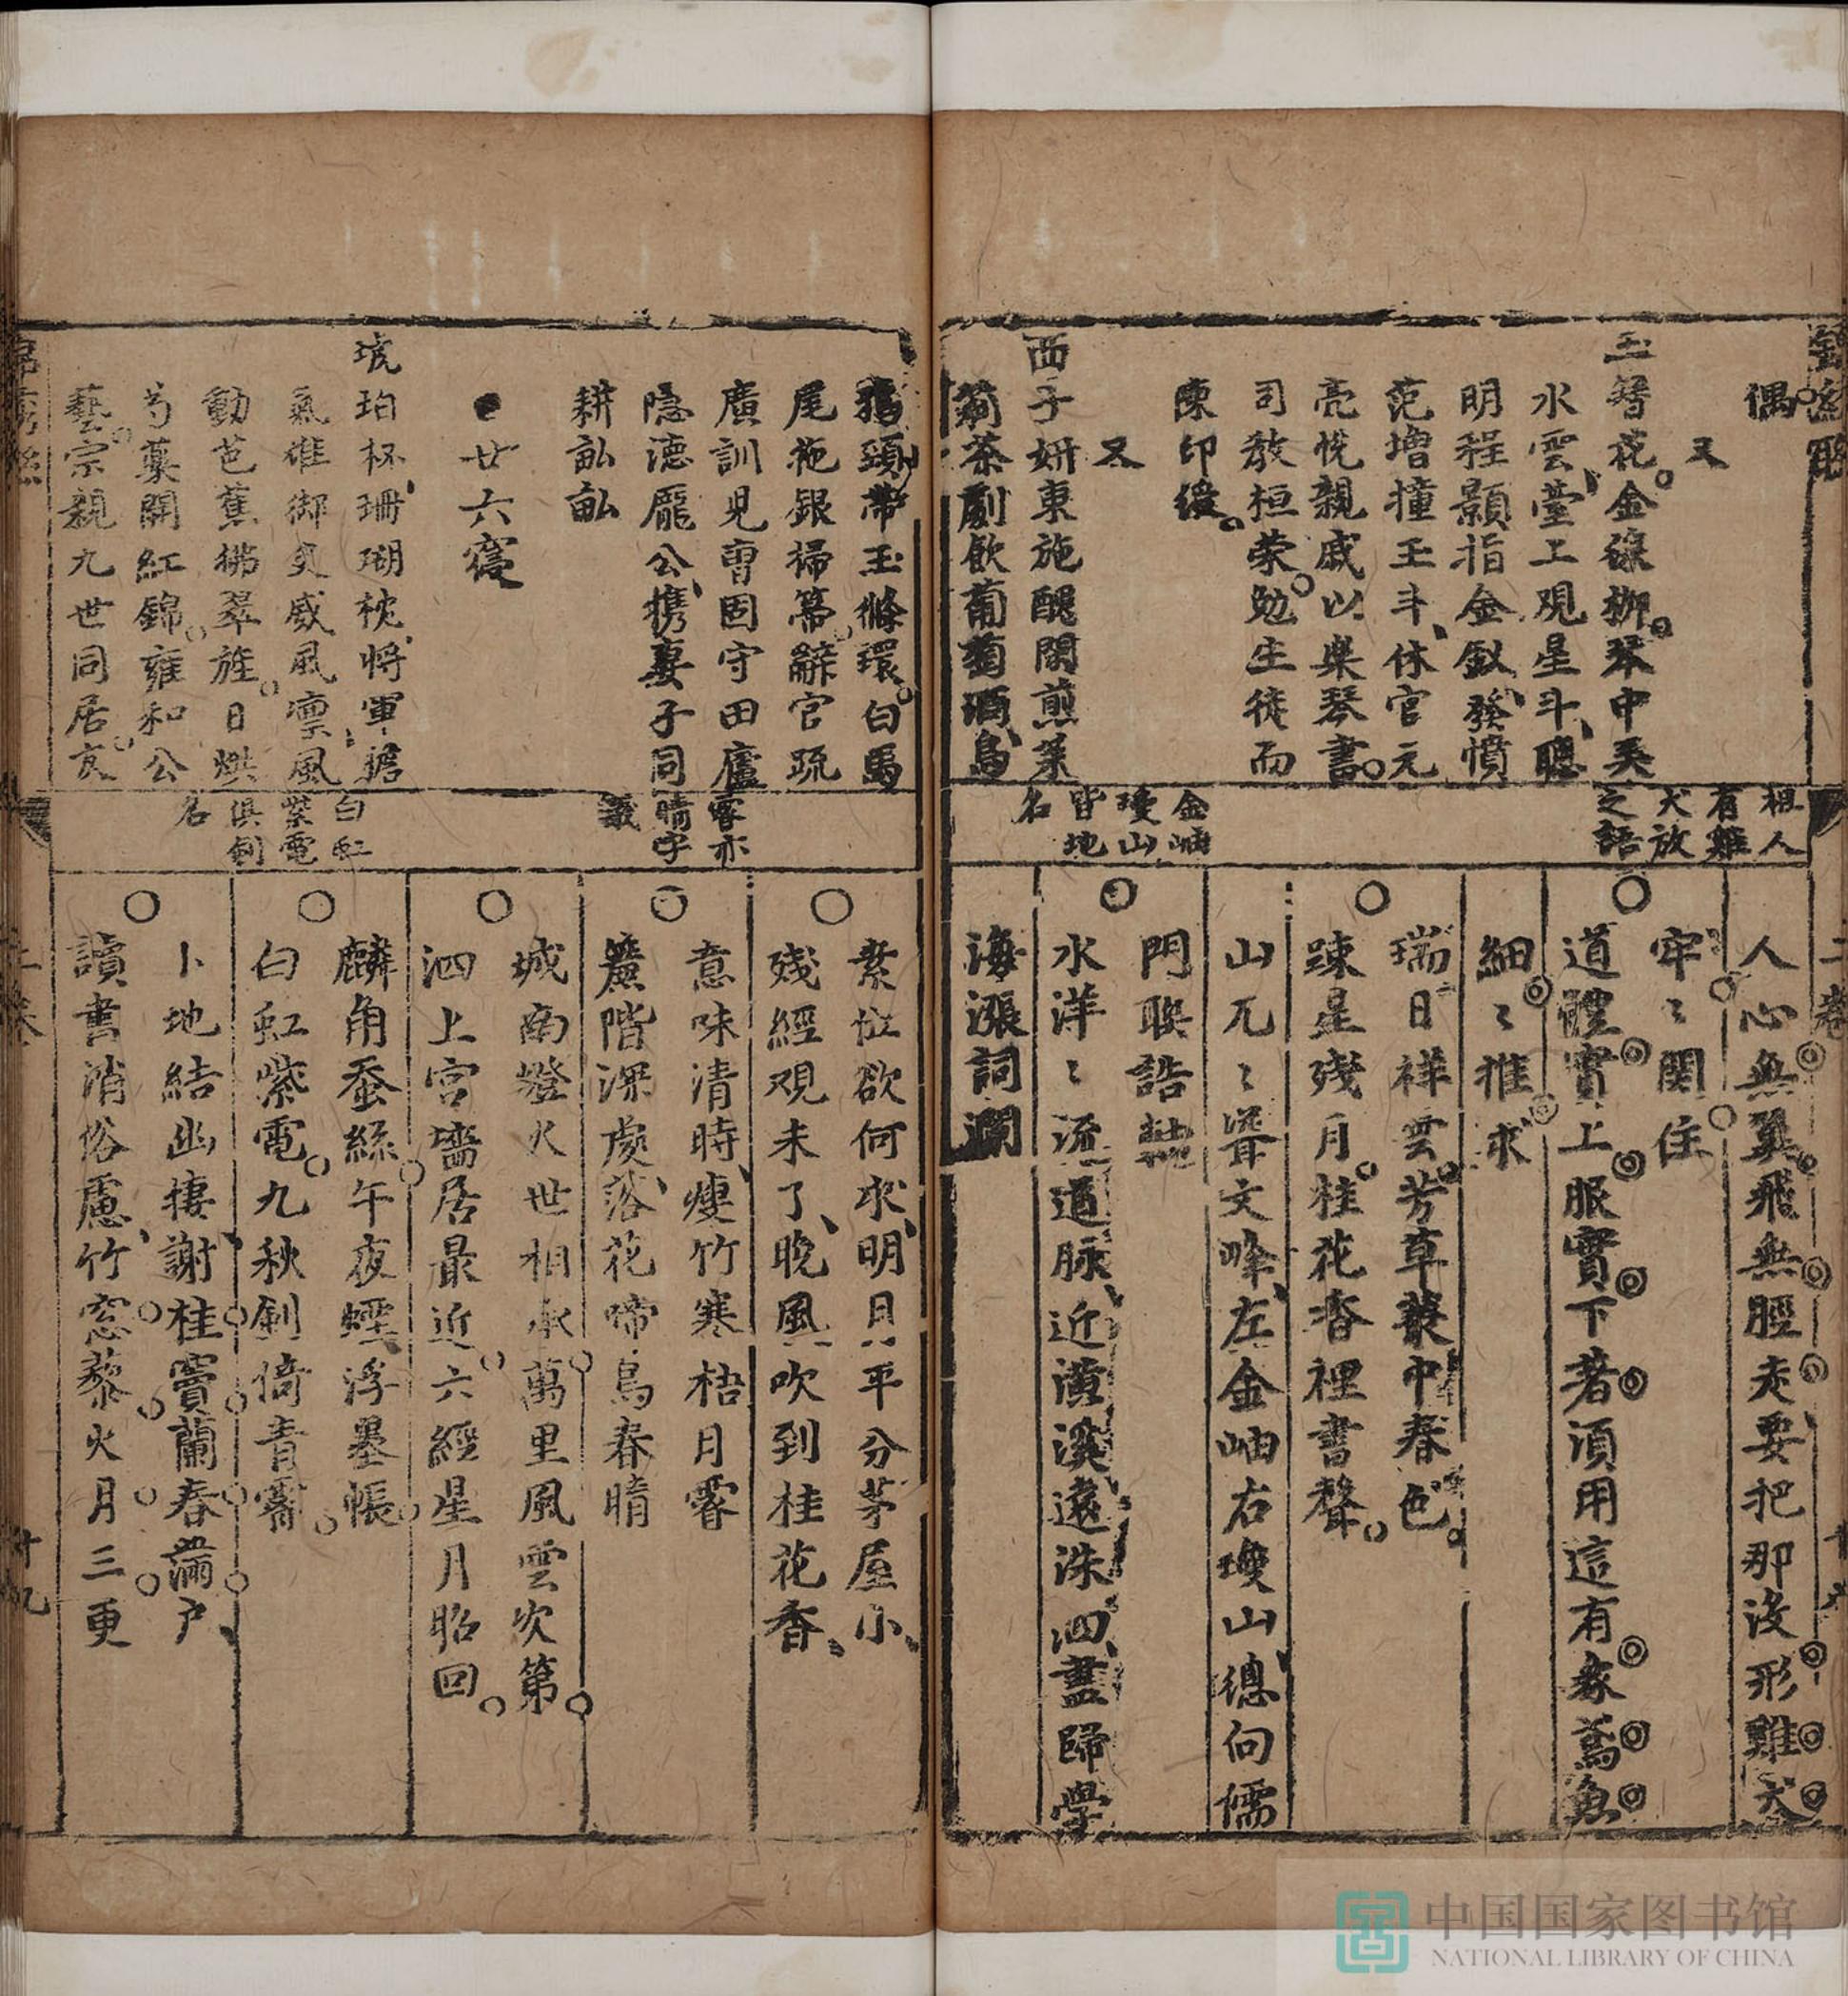 偶
又
玉簪花金線柳琴中美
水雲臺上观星斗聽
明程顥指金釵發憤
范增撞玉斗休官元
亮悅親戚以樂琴書
司教桓荣勉生徒而
陳印綬
又
西子妍東施醜閑煎茉
莉茶劇飲葡萄酒烏
祖人
有雞
犬放
之語
金岫
瓊山
皆地
名
人心無翼飛無脛走要把那没形雞犬
牢〻関住
道體實上服實下著須用這有象鳶魚
細〻推求
瑞日祥雲芳草叢中春色
疎星殘月桂花香裡書聲
山兀〻聳文峰左金岫右瓊山總向儒
門联誥軸
水洋〻流道脉近濂溪遠洙泗盡歸學
海漲詞瀾
二卷
猫頭帶玉絛環白馬
尾拖銀掃箒辭官疏
廣訓見曺固守田廬
隐德龐公携妻子同
耕畆畆
廿六寔
琥珀杯珊瑚枕将軍擄
氣雄御史威風凛風
動芭蕉拂翠旌日烘
芍藥開紅錦雍和公
藝宗親九世同居友
霽亦
晴字
義
白虹
紫電
俱劍
名
素位欲何求明月平分茅屋小
殘經观未了晚風吹到桂花香
意味清時瘦竹寒梧月霽
簾階深處落花啼鳥春晴
城南燈火世相承萬里風雲次第
泗上宮墻居最近六經星月昭回
麟角蚕絲午夜螢浮墨帳
白虹紫電九秋劍倚青霄
卜地結幽棲謝桂竇蘭春滿户
讀書消俗慮竹窓藜火月三更
十九
中国国家图书馆
NATIONAL LIBRARY OF CHINA